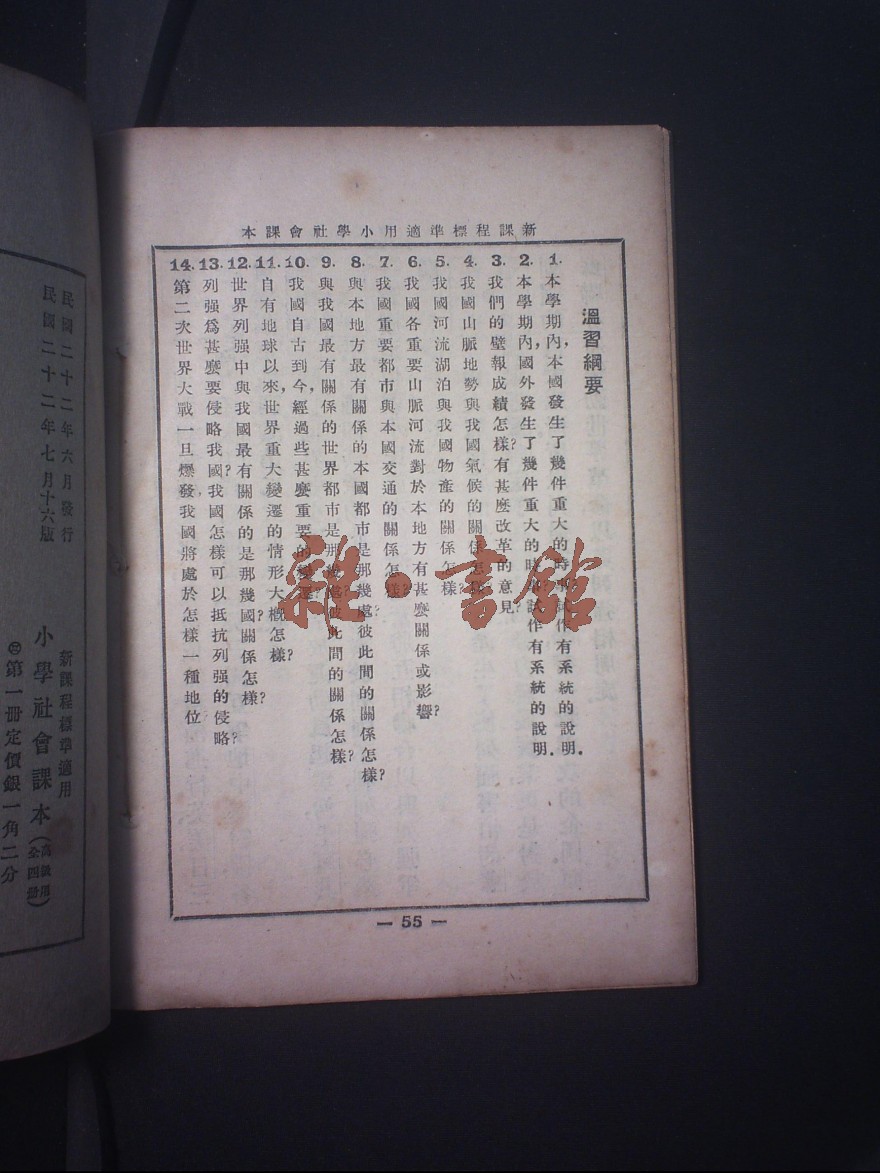 新課程標準適用小學社會課本
溫習綱要
1. 本學期內,本國發生了幾件重大的時事?試作有系統的說明.
2. 本學期內,國外發生了幾件重大的時事?試作有系統的說明.
3. 我們的壁報成績怎樣?有甚麼改革的意見?
4. 我國山脈地勢與我國氣候的關係怎樣?
5. 我國河流湖泊與我國物產的關係怎樣?
6. 我國各重要山脈河流對於本地方有甚麼關係或影響?
7. 我國重要都市與本國交通的關係怎樣?
8. 與本地方最有關係的本國都市是那幾處?彼此間的關係怎樣?
9. 與我國最有關係的世界都市是那幾處?彼此間的關係怎樣?
10. 我國自古到今,經過些甚麼重要的變遷?
11. 自有地球以來,世界重大變遷的情形大概怎樣?
12. 世界列强中與我國最有關係的是那幾國?關係怎樣?
13. 列强爲甚麼要侵略我國?我國怎樣可以抵抗列强的侵略?
14. 第二次世界大戰一旦爆發,我國將處於怎樣一種地位
— 55 —
民國二十二年六月發行
民國二十二年七月十六版
新課程標準適用
小學社會課本(高級用全四冊)
第一冊定價銀一角二分
雜·書館